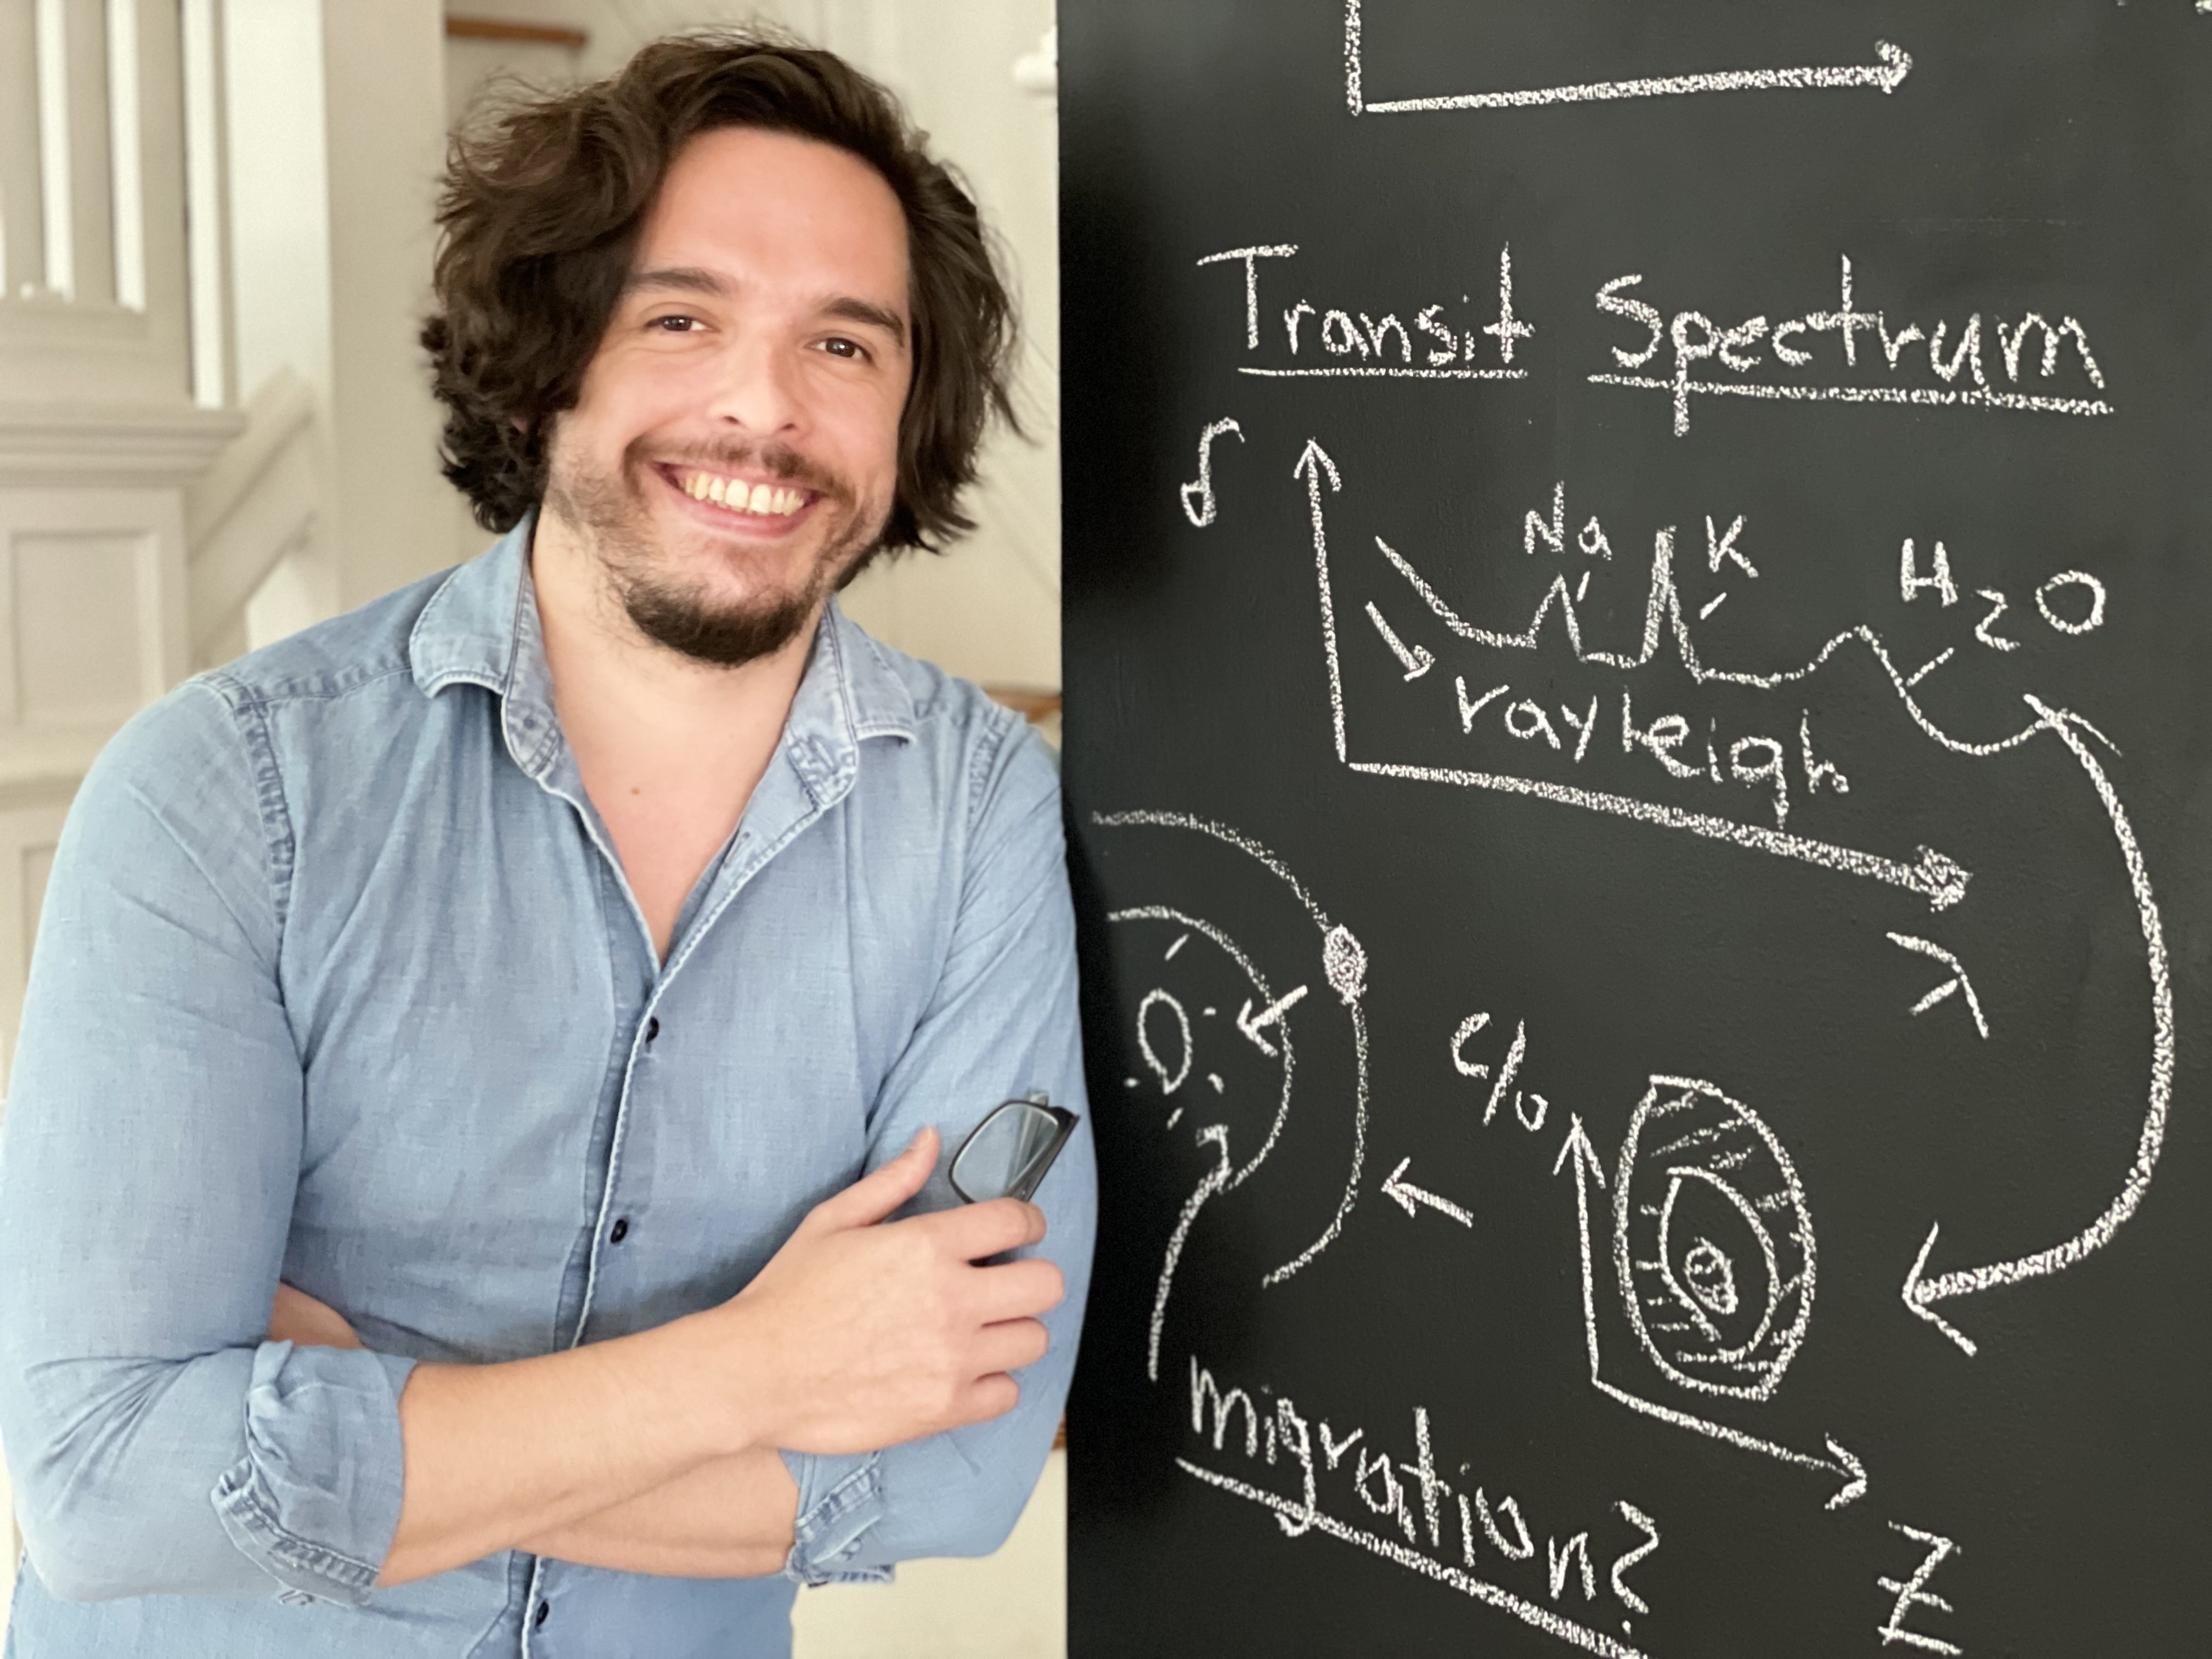 Transit Spectrum
δ
Na
K
H2O
rayleigh
λ
C/O
Z
migration?